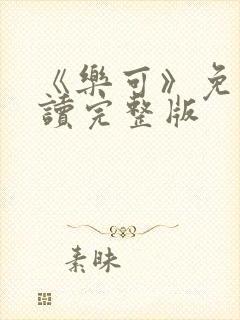 《樂可》免
讀完整版
素昧